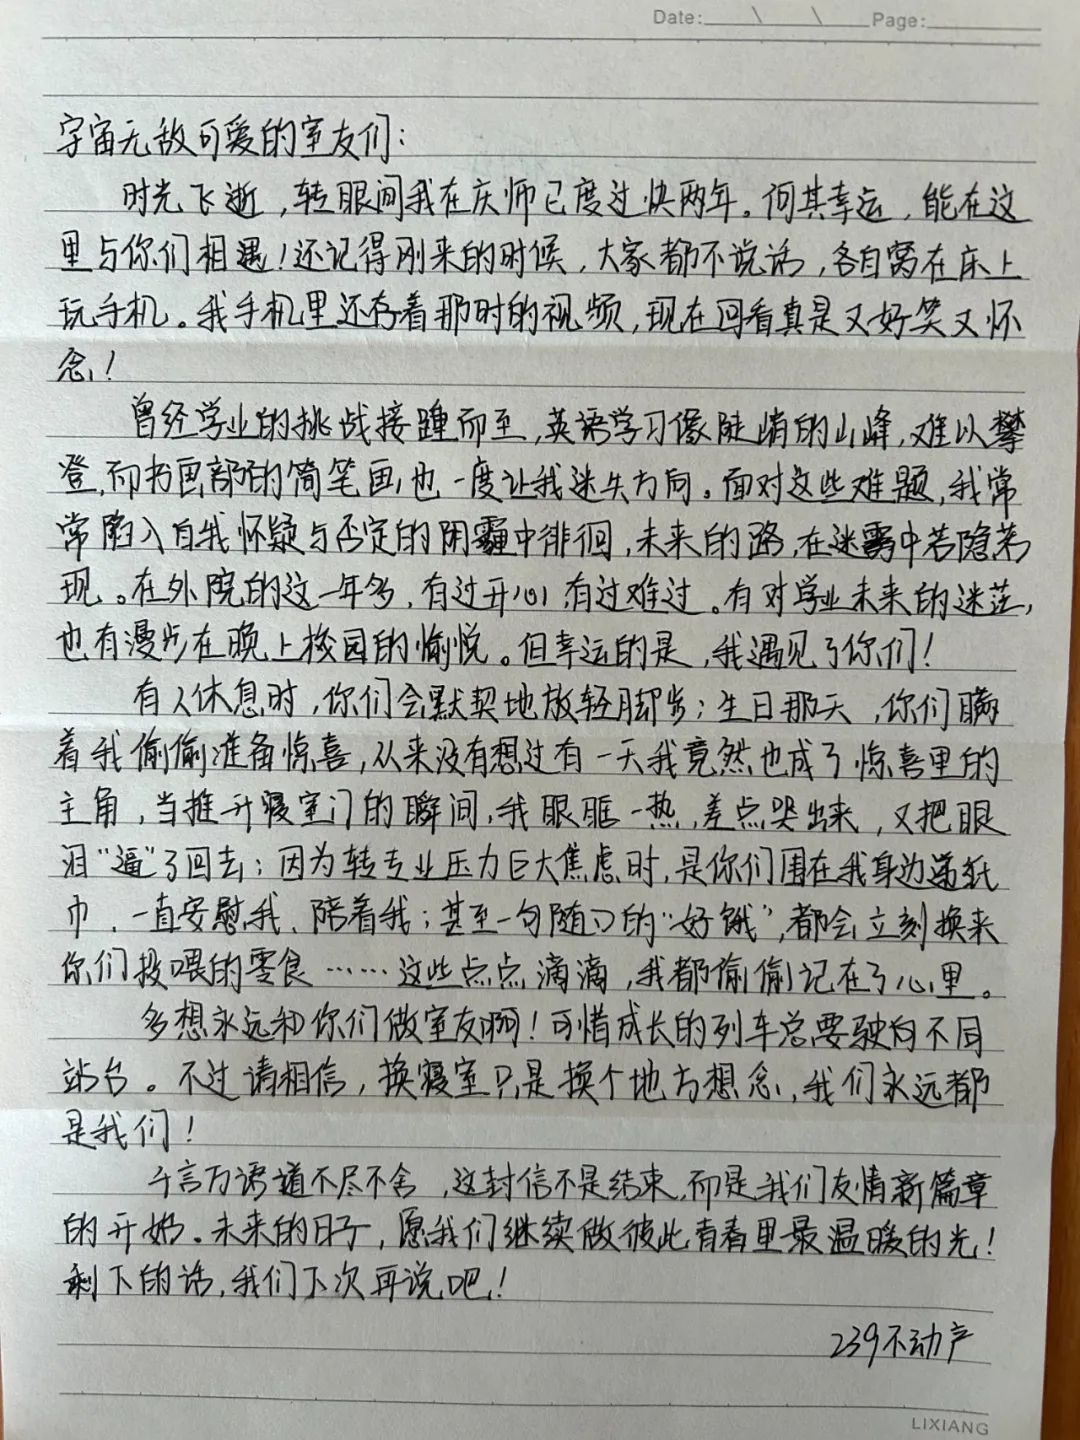 Date: \ \ Page:
宇宙无敌可爱的室友们：
时光飞逝，转眼间我在庆师已度过快两年。何其幸运，能在这
里与你们相遇！还记得刚来的时候，大家都不说话，各自窝在床上
玩手机。我手机里还存着那时的视频，现在回看真是又好笑又怀
念！
曾经学业的挑战接踵而至，英语学习像陡峭的山峰，难以攀
登，而书画部的简笔画也一度让我迷失方向。面对这些难题，我常
常陷入自我怀疑与否定的阴霾中徘徊，未来的路，在迷雾中若隐若
现。在外院的这一年多，有过开心，有过难过。有对学业未来的迷茫，
也有漫步在晚上校园的愉悦。但幸运的是，我遇见了你们！
有人休息时，你们会默契地放轻脚步；生日那天，你们瞒
着我偷偷准备惊喜，从来没有想过有一天我竟然也成了惊喜里的
主角，当推开寝室门的瞬间，我眼眶一热，差点哭出来，又把眼
泪“逼”了回去；因为转专业压力巨大焦虑时，是你们围在我身边递纸
巾、一直安慰我、陪着我；甚至一句随口的“好饿”，都会立刻换来
你们投喂的零食……这些点点滴滴，我都偷偷记在了心里。
多想永远和你们做室友啊！可惜成长的列车总要驶向不同
站台。不过请相信，换寝室只是换个地方想念，我们永远都
是我们！
千言万语道不尽不舍，这封信不是结束，而是我们友情新篇章
的开始。未来的日子，愿我们继续做彼此青春里最温暖的光！
剩下的话，我们下次再说吧！
239不动产
LIXIANG